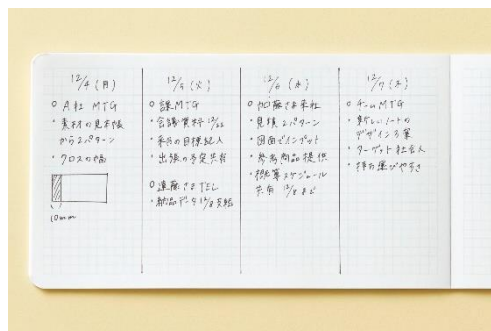 12/4 (月)
○ A社 MTG
・素材の見本帳
から2パターン
・クロスの幅
10mm
12/5 (火)
○ 課MTG
・会議資料 12/22
・来月の目標記入
・出張の予定共有
○ 遠藤さまTEL
・納品データ 12/8 支給
12/6 (水)
○ 加藤さま来社
・見積2パターン
・図面でインプット
・参考商品提供
・概算スケジュール
共有 12/8 まで
12/7 (木)
○ チームMTG
・新しいノートの
デザイン3案
・ターゲット社会人
・持ち運びやすさ